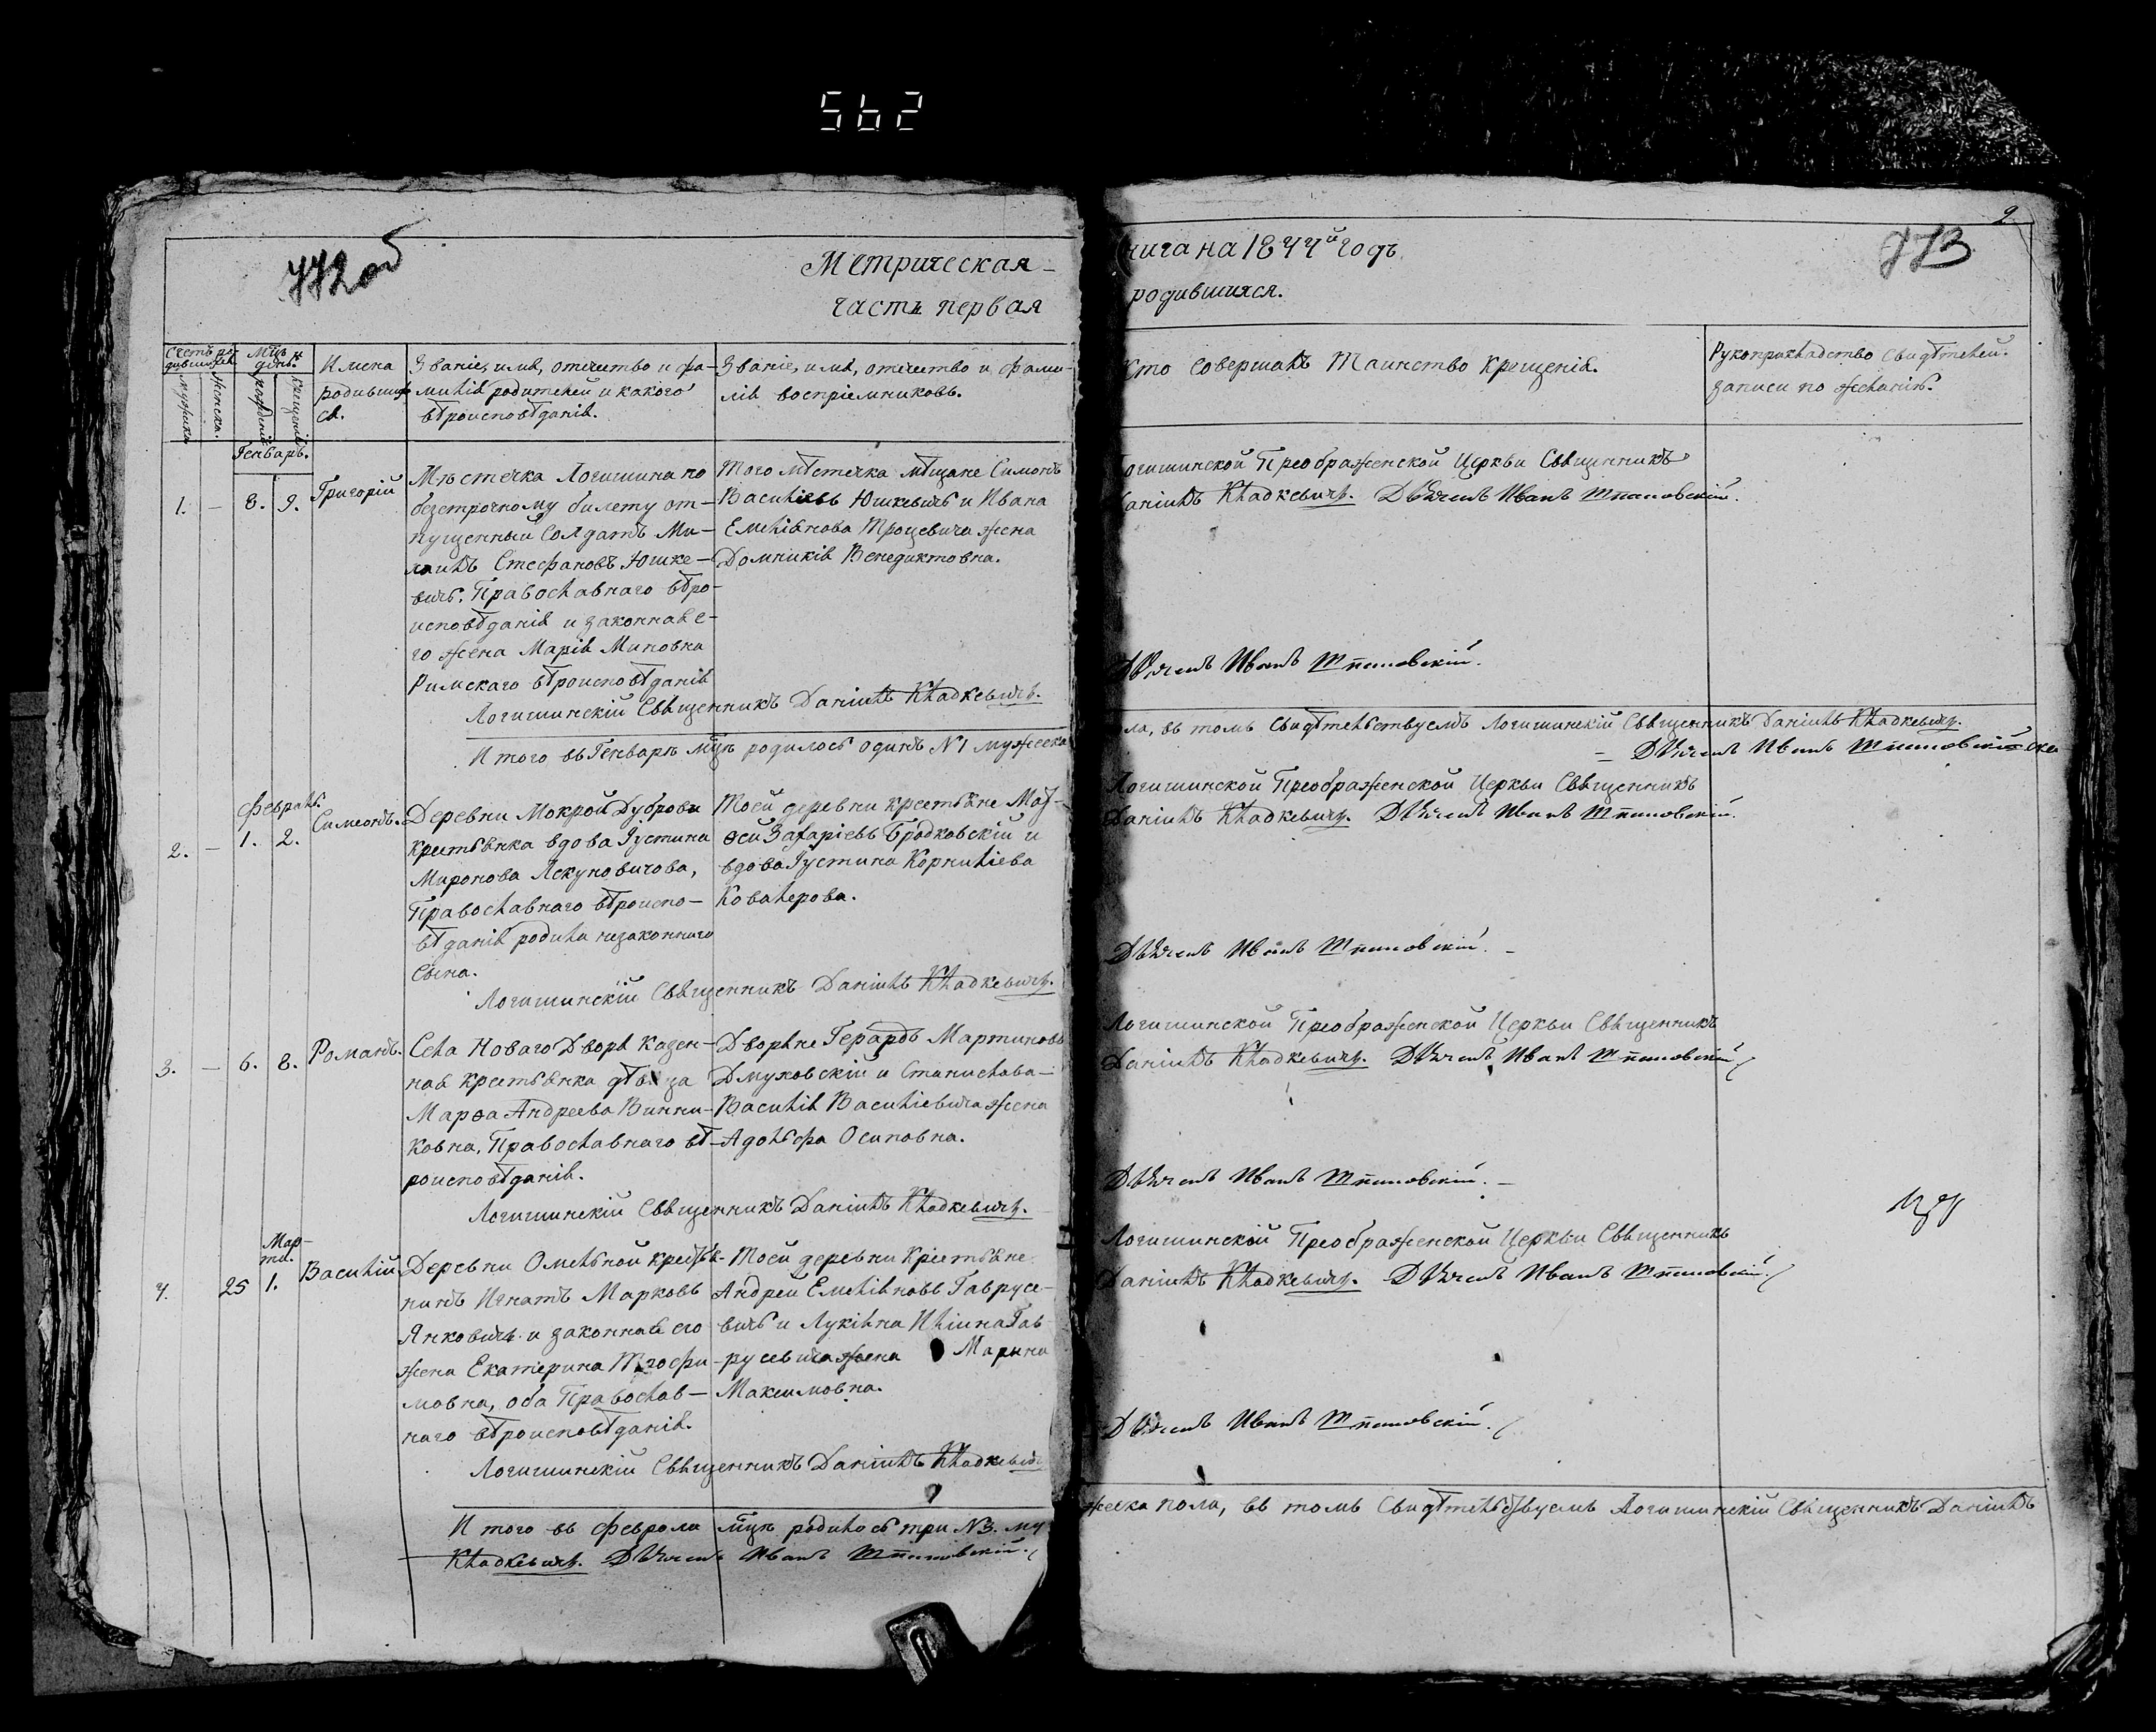 562
772 об
Метрическая
часть первая
нига на 1844й годъ
родившихся.
773
2
Счетъ ро-
дившихся
Мцъ и
день.
мужска
женска.
рожденія
крещенія
Имена
родивших
ся.
Званіе, имя, отчество и фа-
милія родителей и какого
вѣроисповѣданія.
Званіе, имя, отчество и фами-
лія воспріемниковъ.
Кто совершалъ Таинство Крещенія.
Рукоприкладство свидѣтелей
записи по желанію.
Генварь.
1. – 8. 9. Григорій
Мѣстечка Логишина по
безсрочному билету от-
пущенный Солдатъ Ми-
хаилъ Стефановъ Юшке-
вичъ. Православнаго вѣро-
исповѣданія и законная е-
го жена Марія Миновна
Римскаго вѣроисповѣданія
Того мѣстечка мѣщане Симонъ
Васильевъ Юшкевичъ и Ивана
Емеліанова Троцевича жена
Домникія Венедиктовна.
Логишинской Преображенской Церкви Священникъ
Даніилъ Кладкевичъ. Дьячекъ Иванъ
Дьячекъ Иванъ
Логишинскій Священникъ Даніилъ Кладкевичъ.
И того въ Генварѣ мцѣ родилось одинъ N1 мужеска
пола, въ томъ свидѣтельствуемъ Логишинскій Священникъ Даніилъ Кладкевичъ.
Дьячекъ Иванъ
Февраль.
2. – 1. 2. Симеонъ.
Деревни Мокрой Дубровы
крестьянка вдова Іустина
Миронова Лекуновичова,
Православнаго вѣроиспо-
вѣданія родила незаконнаго
сына.
Тоей деревни крестьяне Мат-
ѳей Захаріевъ Бродковскій и
вдова Іустина Корниліева
Ковалерова.
Логишинской Преображенской Церкви Священникъ
Даніилъ Кладкевичъ. Дьячекъ Иванъ
Дьячекъ Иванъ
Логишинскій Священникъ Даніилъ Кладкевичъ.
3. – 6. 8. Романъ.
Села Новаго Двора Казен-
ная крестьянка дѣвица
Марѳа Андреева Винни-
ковна, Православнаго вѣ-
роисповѣданія.
Дворяне Герардъ Мартиновъ
Дмуховскій и Станислава
Василія Васильевича жена
Адольфа Осиповна.
Логишинской Преображенской Церкви Священникъ
Даніилъ Кладкевичъ. Дьячекъ Иванъ
Дьячекъ Иванъ
Логишинскій Священникъ Даніилъ Кладкевичъ.
Мар-
та.
4. 25 1. Василій
Деревни Омельной крестья-
нинъ Игнатъ Марковъ
Янковичъ и законная его
жена Екатерина Трофи-
мовна, оба Православ-
наго вѣроисповѣданія.
Тоей деревни Крестьяне
Андрей Емеліяновъ Гаврусе-
вичъ и Лукіяна Иліина Гав-
русевича жена Марина
Максимовна.
Логишинской Преображенской Церкви Священникъ
Даніилъ Кладкевичъ. Дьячекъ Иванъ
Дьячекъ Иванъ
Логишинскій Священникъ Даніилъ Кладкевичъ
И того въ Февралѣ мцѣ родилось три N3. му
жеска пола, въ томъ свидѣтельствуемъ Логишинскій Священникъ Даніилъ
Кладкевичъ. Дьячекъ Иванъ